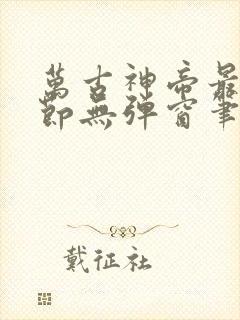 萬古神帝最
節無彈窗筆
戴征社